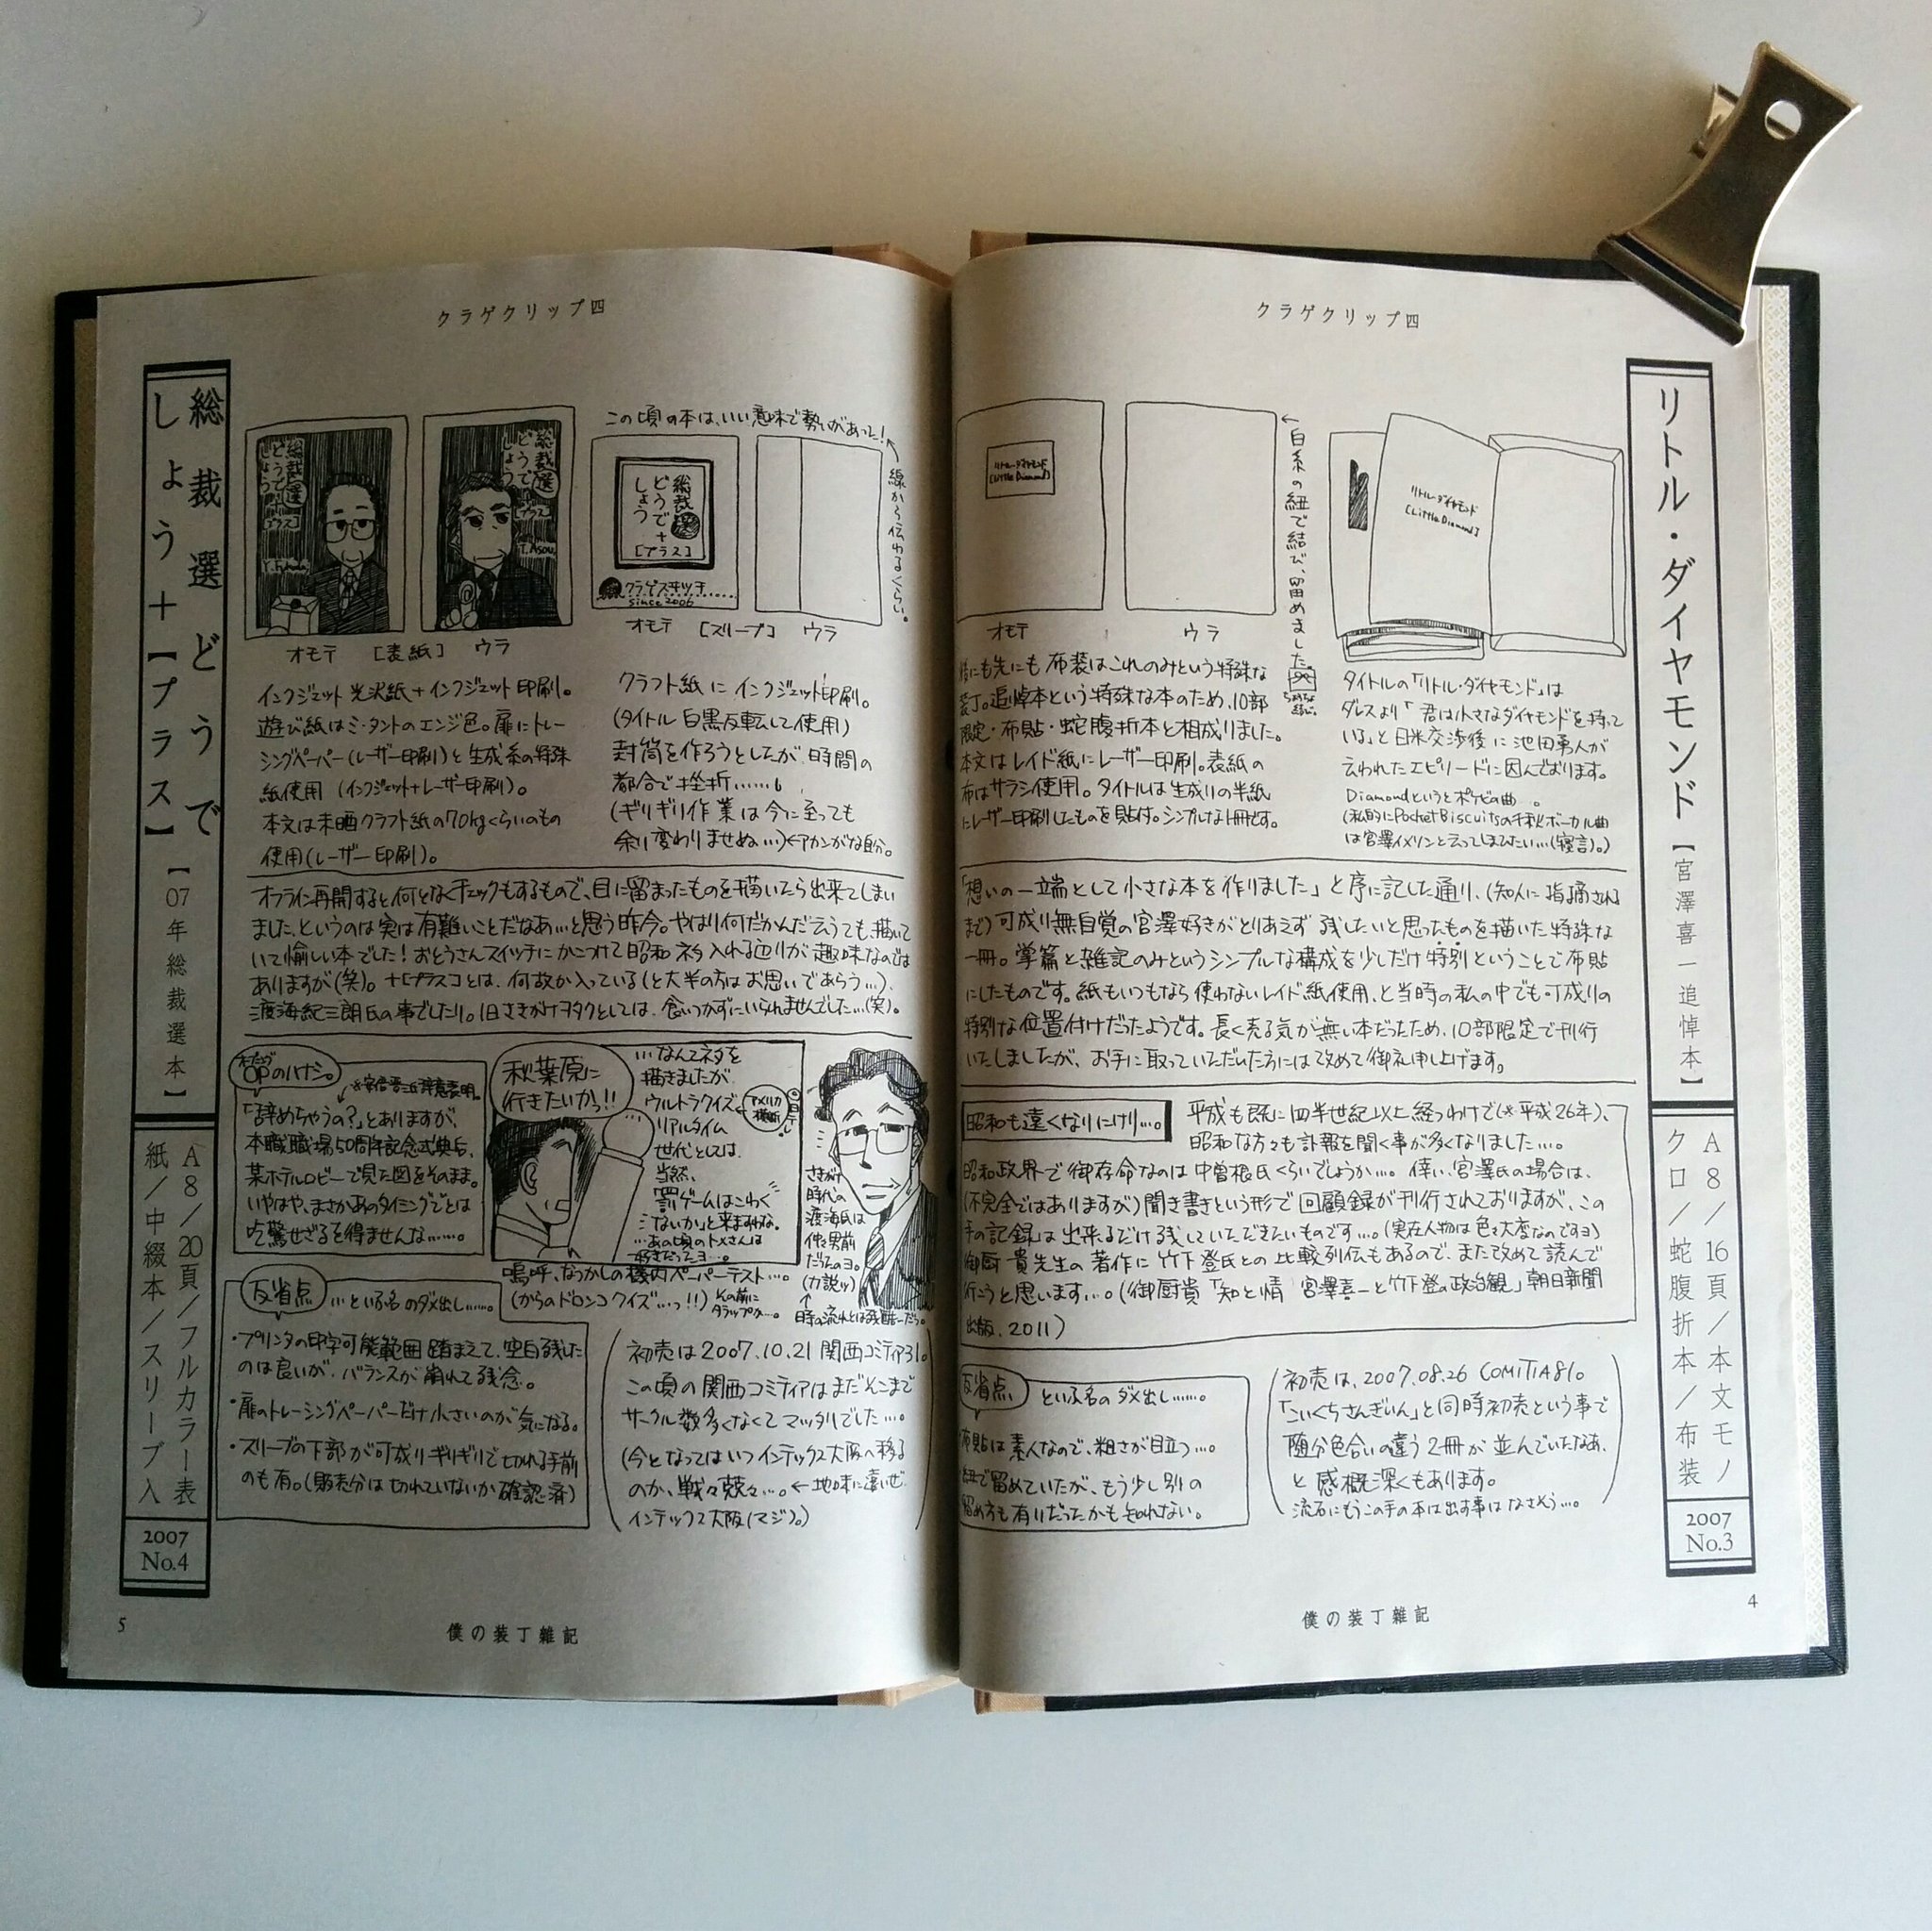 クラゲクリップ四
リトル・ダイヤモンド
【宮澤喜一追悼本】
A8/16頁/本文モノ
クロ/蛇腹折本/布装
2007
No.3
リトル・ダイヤモンド
[Little Diamond]
←白糸の紐で結び、留めました。
リトル・ダイヤモンド
[Little Diamond]
オモテ
ウラ
タイトルの「リトル・ダイヤモンド」は
ダレスより「君は小さなダイヤモンドを持って
いる」と日米交渉後に池田勇人が
云われたエピソードに因んでおります。
Diamondというとポケビの曲…。
(私的にPocket Biscuitsの千秋ボーカル曲
は宮澤イメソンと云ってしまいたい…(寝言)。)
後にも先にも布装はこれのみという特殊な
装丁。追悼本という特殊な本のため、10部
限定・布貼・蛇腹折本と相成りました。
本文はレイド紙にレーザー印刷。表紙の
布はサラシ使用。タイトルは生成りの半紙
にレーザー印刷したものを貼付。シンプルな1冊です。
「想いの一端として小さな本を作りました」と序に記した通り、(知人に指摘され
まで)可成り無自覚の宮澤好きがとりあえず残したいと思ったものを描いた特殊な
一冊。掌篇と雑記のみというシンプルな構成を少しだけ特別ということで布貼
にしたものです。紙もいつもなら使わないレイド紙使用、と当時の私の中でも可成りの
特別な位置付けだったようです。長く売る気が無い本だったため、10部限定で刊行
いたしましたが、お手に取っていただいた方には改めて御礼申し上げます。
昭和も遠くなりにけり…。
平成も既に四半世紀以上経つわけで(※平成26年)、
昭和な方々も訃報を聞く事が多くなりました…。
昭和政界で御存命なのは中曽根氏くらいでしょうか…。倖い、宮澤氏の場合は、
(不完全ではありますが)聞き書きという形で回顧録が刊行されておりますが、この
手の記録は出来るだけ残していただきたいものです…。(実在人物は色々大変なのですヨ)
御厨貴先生の著作に竹下登氏との比較列伝もあるので、また改めて読んで
行こうと思います…。(御厨貴「知と情 宮澤喜一と竹下登の政治観」朝日新聞
出版、2011)
反省点 といふ名のダメ出し……。
布貼は素人なので、粗さが目立つ…。
紐で留めていたが、もう少し別の
留め方も有りだったかも知れない。
初売は、2007.08.26 COMITIA81。
「こいくちさんぎいん」と同時初売という事で
随分色合いの違う2冊が並んでいたなあ、
と感慨深くもあります。
流石にもうこの手の本は出す事はなさそう…。
4
僕の装丁雑記
クラゲクリップ四
総裁選どうで
しょう+【プラス】
【07年総裁選本】
A8/20頁/フルカラー表
紙/中綴本/スリーブ入
2007
No.4
この頃の本は、いい意味で勢いがあった!
←線から伝わるくらい。
総裁選
どうで
しょう
+
[プラス]
Y.Fukuda
総裁選
どうで
しょう
[プラス]
T.Asou
総裁選
どうで
しょう
+
[プラス]
クラゲスサッチ
since 2006
オモテ [表紙] ウラ
オモテ [スリーブ] ウラ
インクジェット光沢紙+インクジェット印刷。
遊び紙はミ・タントのエンジ色。扉にトレー
シングペーパー(レーザー印刷)と生成系の特殊
紙使用(インクジェット+レーザー印刷)。
本文は未晒クラフト紙の70kgくらいのもの
使用(レーザー印刷)。
クラフト紙にインクジェット印刷。
(タイトル白黒反転して使用)
封筒を作ろうとしたが、時間の
都合で挫折……。
(ギリギリ作業は今に至っても
余り変わりませぬ…)←アカンがな自分。
オフライン再開すると何となくチェックもするもので、目に留まったものを描いたら出来てしまい
ました、というのは実は有難いことだなあ…と思う昨今。やはり何だかんだ云うても描いて
いて愉しい本でした!おとうさんスイッチにかこつけて昭和ネタ入れる辺りが趣味なのでは
ありますが(笑)。+[プラス]とは、何故か入っている(と大半の方はお思いであろう…)、
渡海紀三朗氏の事でしたり。旧さきがけヲタクとしては、食いつかずにいられませんでした…(笑)。
OPのハナシ。
※安倍晋三氏辞意表明。
「辞めちゃうの?」とありますが、
本職職場50周年記念式典后、
某ホテルロビーで見た図をそのまま。
いやはや、まさかあのタイミングでとは
吃驚せざるを得ませんな……。
秋葉原に
行きたいかっ!!
…なんてネタを
描きましたが、
ウルトラクイズ
アメリカ
横断
リアルタイム
世代としては、
当然、
「罰ゲームはこわく
ないか」と来ますわな。
…あの頃のトメさんは
好きだったヨ…。
嗚呼、なつかしの機内ペーパーテスト…。
(からのドロンコクイズ…っ!!)
その前に
タラップか…。
さきがけ
時代の
渡海氏は
件の男前
だったのヨ。
(力説ッ)
↑
時の流れとは残酷…だう。
反省点 …といふ名のダメ出し……。
・プリンタの印字可能範囲踏まえて、空白残した
のは良いが、バランスが崩れて残念。
・扉のトレーシングペーパーだけ小さいのが気になる。
・スリーブの下部が可成りギリギリで切れる手前
のも有。(販売分は切れていないか確認済)
初売は2007.10.21 関西コミティア31。
この頃の関西コミティアはまだそこまで
サークル数多くなくてマッタリでした…。
(今となってはいつインテックス大阪へ移る
のか、戦々兢々…。←地味に遠いぜ、
インテックス大阪(マジ)。)
5
僕の装丁雑記